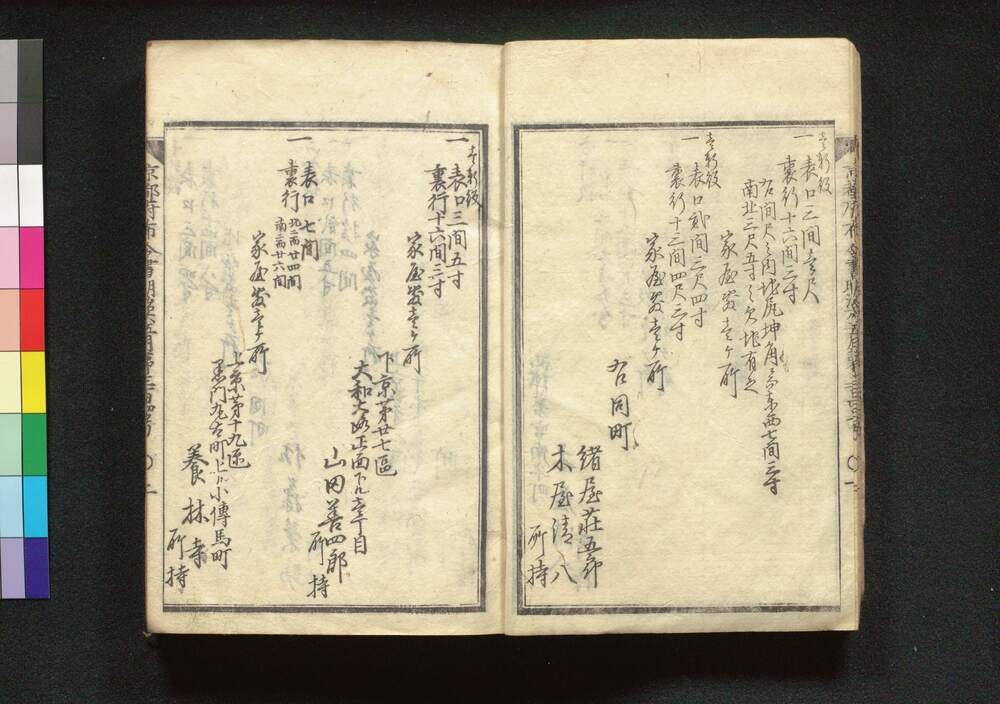 壱新段
一 表口三間壱尺
裏行十六間三寸
右間尺之内地尻坤角ニ而東西七間三寸
南北三尺五寸之欠地有之
家屋敷壱ヶ所
壱新段
一 表口弐間三尺四寸
裏行十三間四尺三寸
家屋敷壱ヶ所
右同町
緒屋荘五郎
木屋清八
所持
一 表口三間五寸
裏行十六間三寸
家屋敷壱ヶ所
下京第廿七區
大和大路正面下ル壱丁目
山田善四郎
所持
一 表口七間
裏行 北ニ而廿四間
南ニ而廿六間
家屋敷壱ヶ所
上京第十九區
黒門丸太町上ル小傳馬町
養林寺
所持